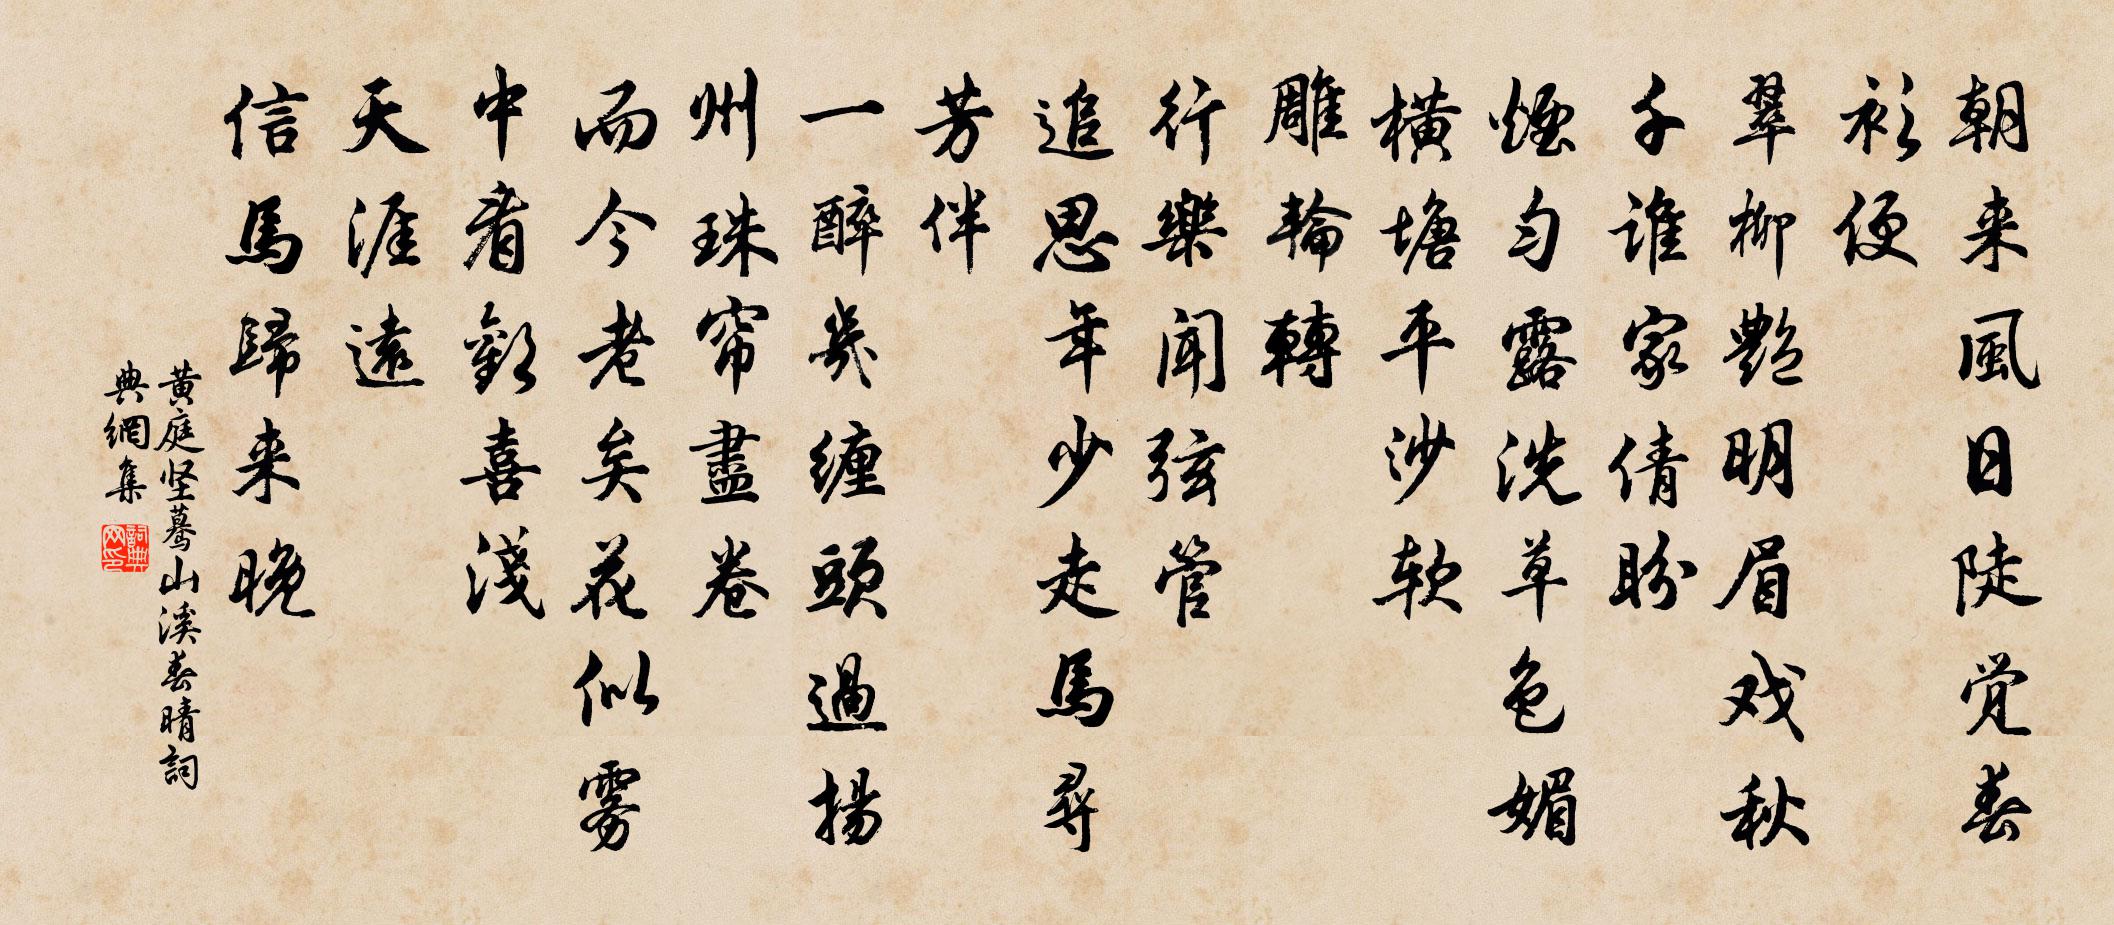 朝来風日陡覚春
衫便
翠柳艶明眉戏秋
千谁家倩盼
煙匀露洗草色媚
横塘平沙软
雕輪轉
行樂闻弦管
追思年少走馬尋
芳伴
一醉幾缠頭過揚
州珠帘盡卷
而今老矣花似雾
中看歡喜淺
天涯遠
信馬歸来晚
黄庭坚蓦山溪春晴詞
典網集
詞典